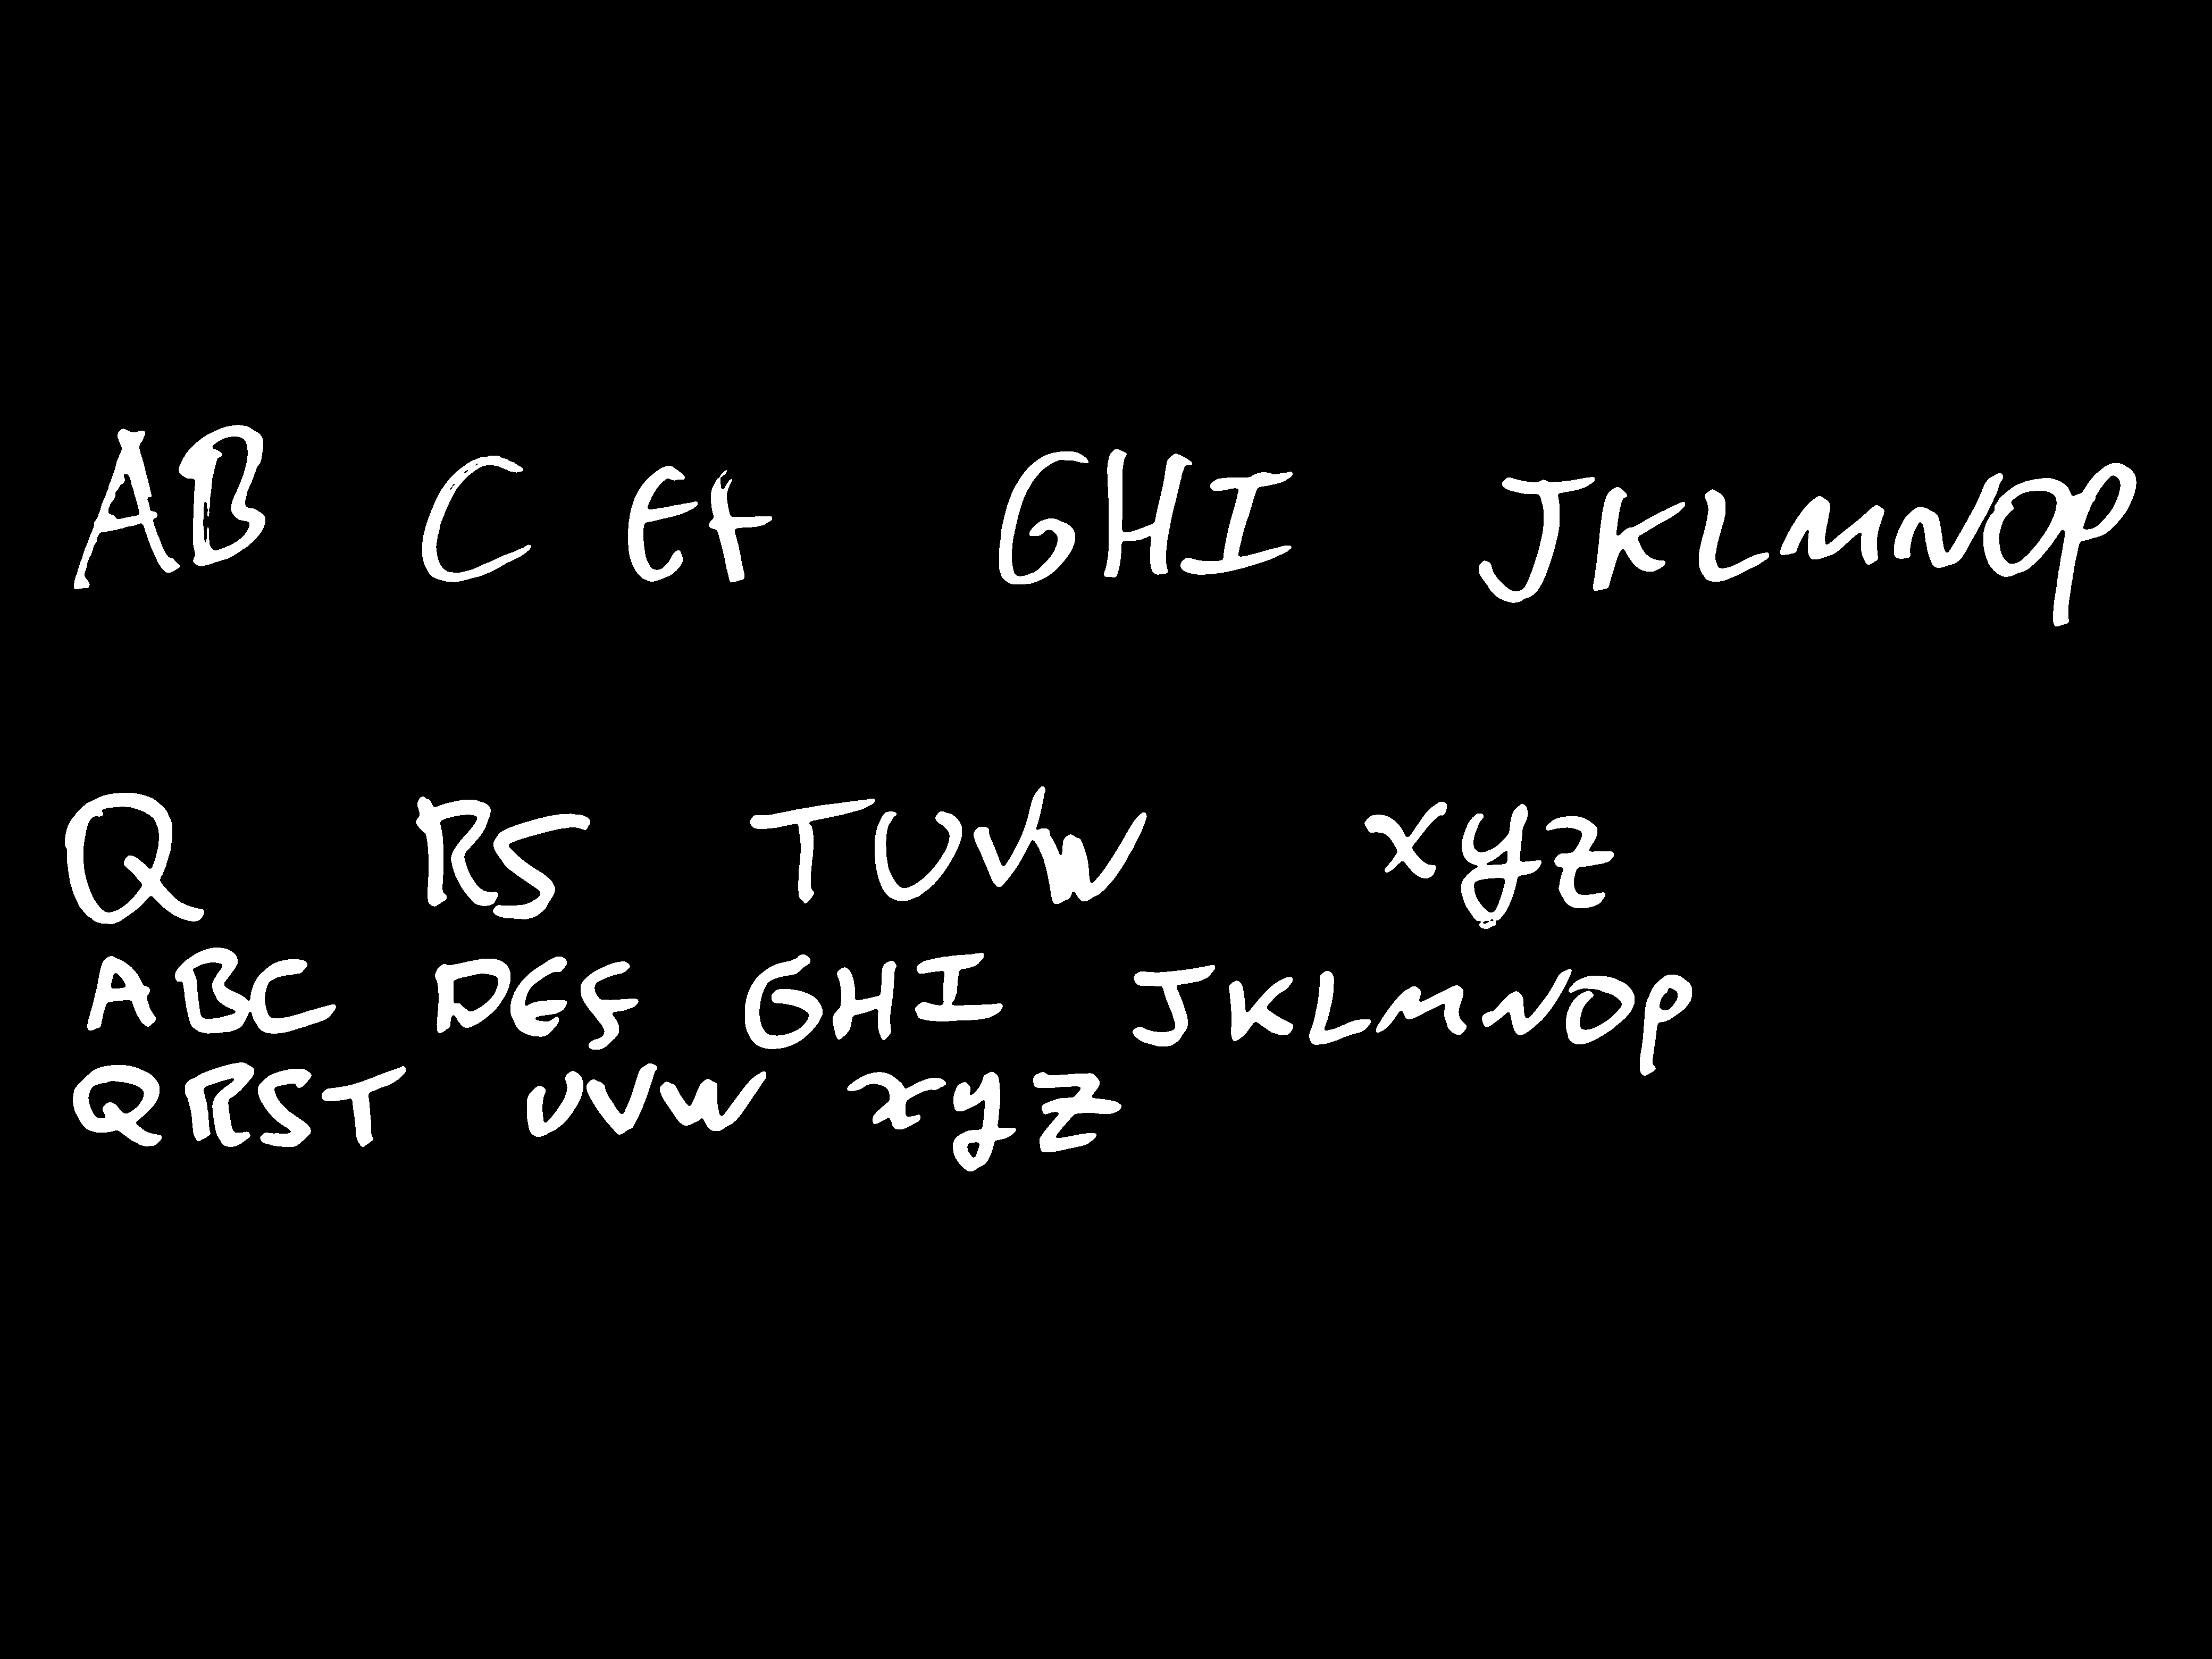 AB C Ef GHI JKLMNOP
Q RS TUVW xyz
ABC DEF GHI JKLMNOP
QRST UVW xyz